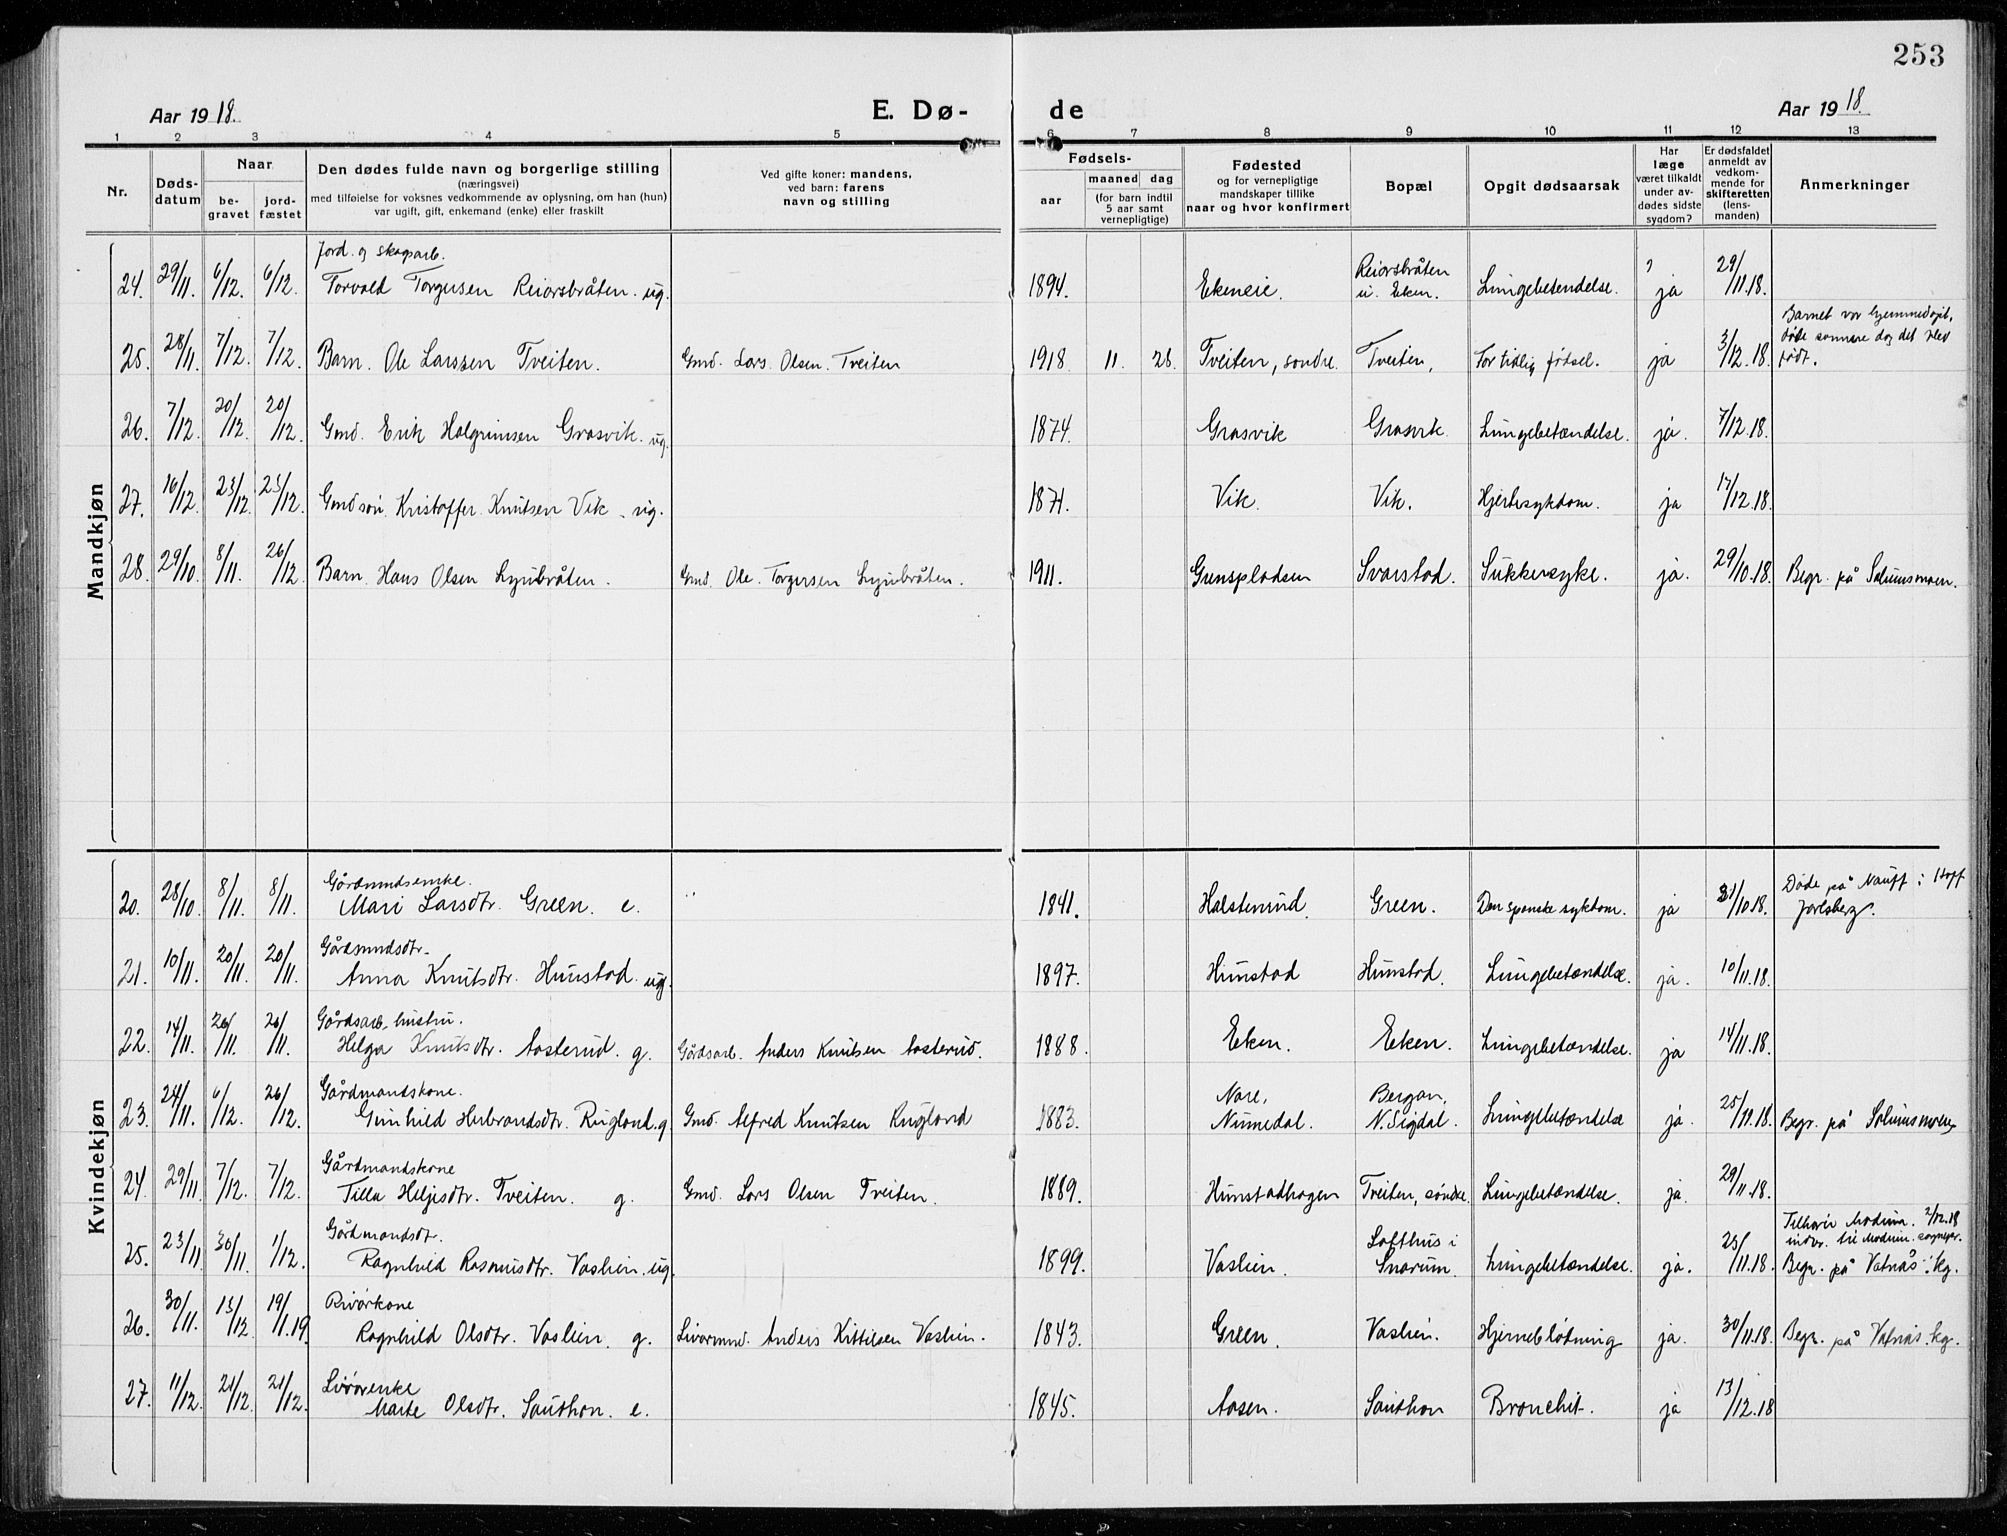 253
Aar 1918. E. Dø- de Aar 1918.
1 2 3 4 5 6 7 8 9 10 11 12 13
Nr. Døds-datum Naar be-gravet jord-fæstet Den dødes fulde navn og borgerlige stilling (næringsvei) med tilføielse for voksnes vedkommende av oplysning, om han (hun) var ugift, gift, enkemand (enke) eller fraskilt Ved gifte koner: mandens, ved barn: farens navn og stilling Fødsels- aar maaned dag (for barn indtil 5 aar samt vernepligtige) Fødested og for vernepligtige mandskaper tillike naar og hvor konfirmert Bopæl Opgit dødsaarsak Har læge været tilkaldt under av-dødes sidste sygdom? Er dødsfaldet anmeldt av vedkom-mende for skifteretten (lens-manden) Anmerkninger
Mandkjøn
24. 29/11. 6/12. 6/12. Jord. og skogarb. Torvald Torgersen Reiorsbråten. ug. 1894. Ekeneie. Reiorsbråten u. Eken. Lungebetendelse. ? ja 29/11.18.
25. 28/11. 7/12. 7/12. Barn. Ole Larssen Tveiten. Gmd. Lars Olsen Tveiten 1918 11. 28. Tveiten, søndre. Tveiten, For tidlig fødsel. ja 3/12.18. Barnet var hjemmedøpt, døde sammme dag det blev født.
26. 7/12. 20/12. 20/12. Gmd. Erik Halgrimsen Grasvik. ug. 1874. Grasvik Grasvik Lungebetændelse. ja. 7/12.18.
27. 16/12. 23/12. 23/12. Gmdsøn Kristoffer Knutsen Vik. ug. 1871. Vik. Vik. Hjertesykdom. ja 17/12.18.
28. 29/10. 8/11. 26/12. Barn. Hans Olsen Lynbråten. Gmd. Ole Torgersen Lynbråten. 1911. Grenspladsen Svarstad. Sukkersyke. ja. 29/10.18. Begr. på Solumsmoen.
Kvindekjøn
20. 28/10. 8/11. 8/11. Gårdmndsenke. Mari Larsdtr. Green. e. 1841. Halstenrud. Green. Den spanske sykdom. ja 31/10.18. Døde på i Hoff Jarlsberg.
21. 10/11. 20/11. 20/11. Gårdmndsdtr. Anna Knutsdtr. Hunstad. ug. 1897. Hunstad Hunstad. Lungebetændelse. ja. 10/11.18.
22. 14/11. 26/11. 26/11. Gårdsarb. hustru. Helga Knutsdtr. Aasterud. g. Gårdsarb. Anders Knutsen Aasterud. 1888. Eken. Eken. Lungebetændelse. ja 14/11.18.
23. 24/11. 6/12. 26/12. Gårdmandskone. Gunhild Herbrandsdtr. Rugland. g Gmd. Alfred Knutsen Rugland 1883. Nore, Numedal. Bergan, N. Sigdal. Lungebetændelse ja. 25/11.18. Begr. på Solumsmoen
24. 29/11. 7/12. 7/12. Gårdmandskone Tilla Heljesdtr. Tveiten. g. Gmd. Lars Olsen Tveiten. 1889. Hunstadhagen Tveiten, søndre. Lungebetændelse. ja. 29/11.18.
25. 23/11. 30/11. 1/12. Gårdmandsdt. Ragnhild Rasmusdtr. Vaslien. ug. 1899. Vaslien. Lofthus i Snarum. Lungebetændelse. ja. 25/11.18. Tilhører Modum. 2/12.18 indber. til Modum. sogneper. Begr. på Vatnås kg.
26. 30/11. 13/12. 19/1.19. Livørkone Ragnhild Olsdtr. Vaslien. g. Livørmnd. Anders Kittilsen Vaslien. 1843. Green. Vaslien. Hjerneblødning ja. 30/11.18. Begr. på Vatnås kg.
27. 11/12. 21/12. 21/12. Livørenke Marte Olsdtr. Sandhon. e. 1845. Aasen. Sandhon Bronchit. ja 13/12.18